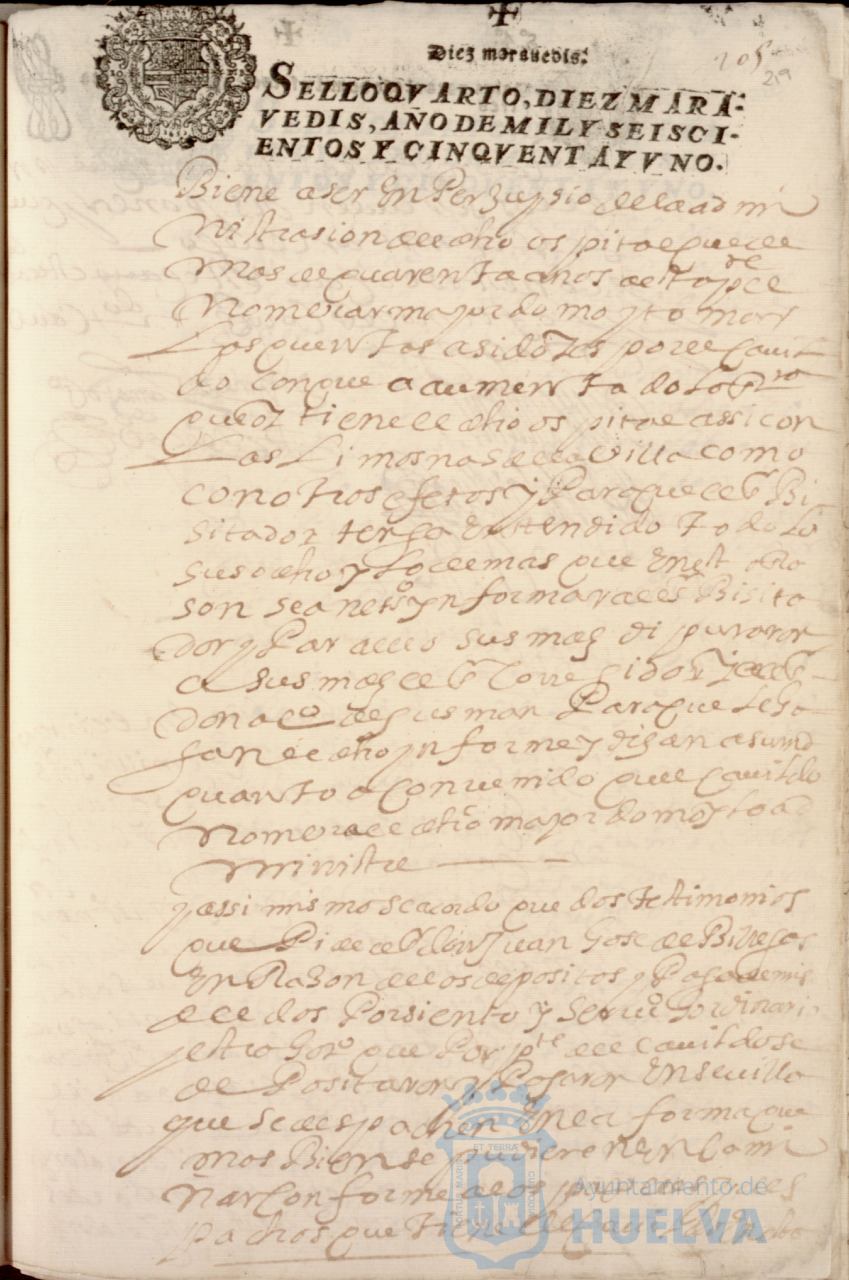 Diez marauedis.
SELLOQVARTO, DIEZ MARA-
VEDIS, AÑO DE MIL Y SEISCI-
ENTOS Y CINQVENTA Y VNO.
105
219
Biene a ser En Perjuysio de la admi
nistrasion de el dho ospital que de
mas de quarenta años a esta pte el
nombrar mayordomo y tomar
Las quentas a sido Los por el cauil
do con que a aumentado Lo
que oy tiene el dho ospital assi con
Las Limosnas de la Villa como
con otros efetos y Para que el Sr Bi
sitador tenga Entendido todo Lo
susodho y Lo demas que En est
son sea neto ynformar al Sr Bisita
dor y Para ello sus mds diputaron
a sus mds el Sr Corregidor y al Sr
don alo de gusman Para que Le ha
gan el dho ynforme y digan a su md
quanto a conuenido que el Cauildo
nombre el dho mayordomo y Lo ad
ministre
y assi mismo se acordo que dos testimonios
que Pide el Sr don Juan Gose de Billegas
En Razon de los depositos y Paga de mis
de el dos Porsiento y Seruo hordinario
y estrao que Por pte de el cauildo se
de Positaron y Pagaron En seuilla
que se despachen En la forma que
mas Bien se pudieren En Cami
nar Conforme a los
pachos que tiene el Cauildo
Ayuntamiento de
HUELVA